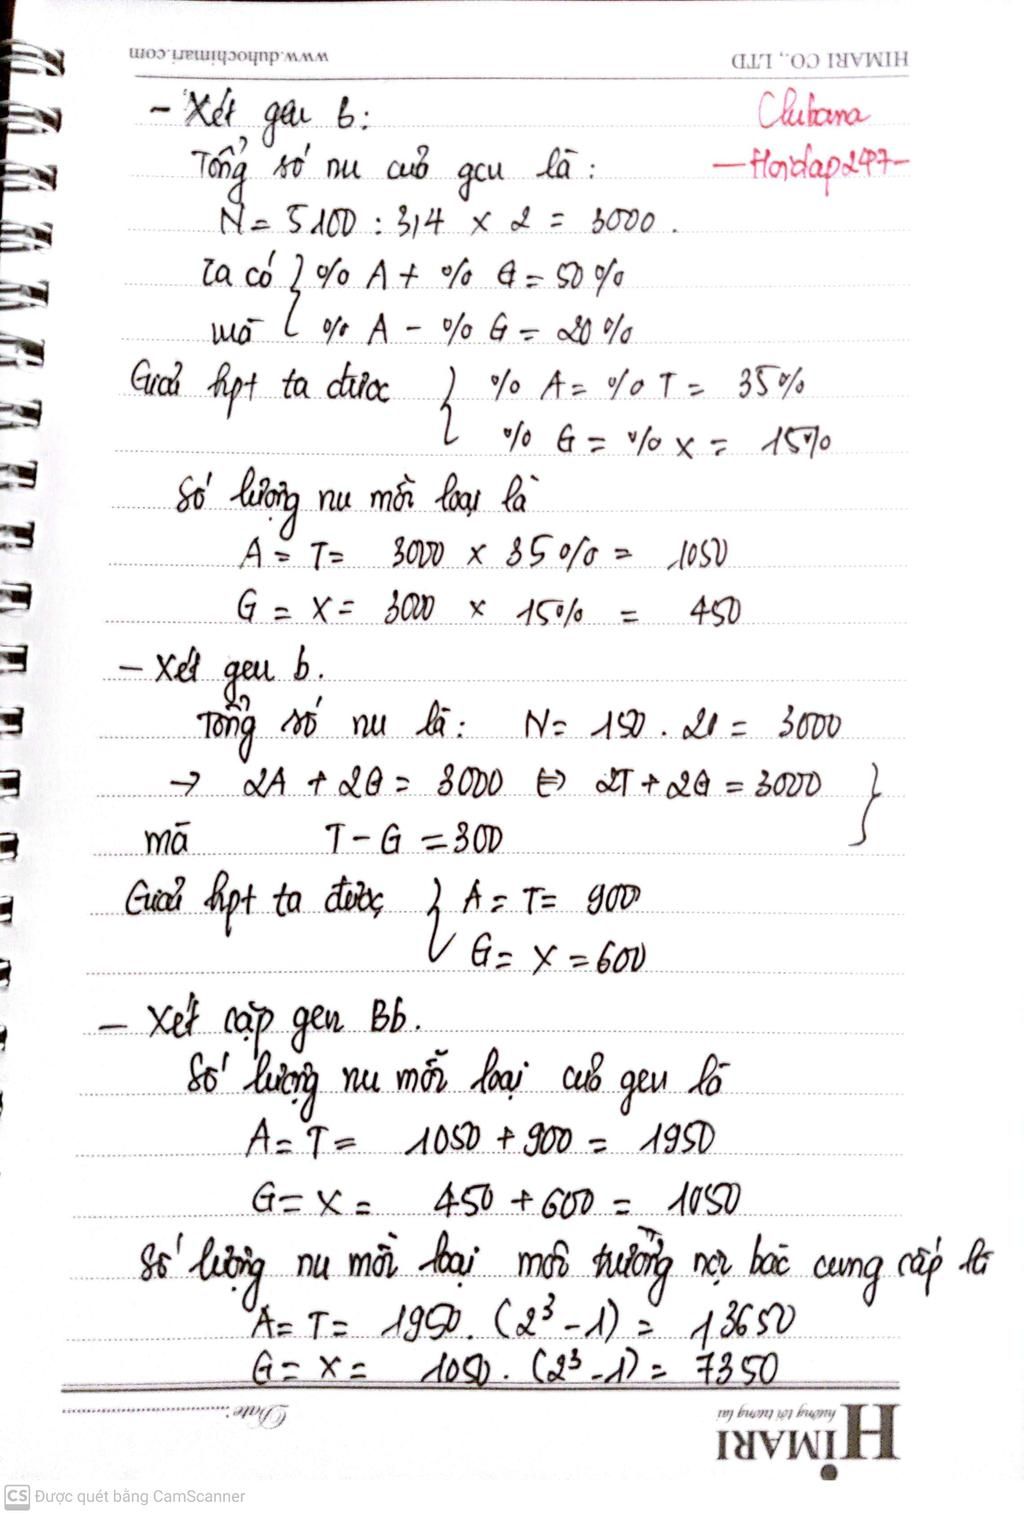 HIMARI CO., LTD
www.duhochimari.com
Chubana
- Hoidap247 -
- Xét gen b:
Tổng số nu của gen là:
N = 5100 : 3,4 x 2 = 3000.
Ta có { % A + % G = 50 %
mà { % A - % G = 20 %
Giải hpt ta được { % A = % T = 35%
% G = % X = 15%
Số lượng nu mỗi loại là
A = T = 3000 x 35% = 1050
G = X = 3000 x 15% = 450
- Xét gen b.
Tổng số nu là: N = 150 . 20 = 3000
→ 2A + 2G = 3000 ⇔ 2T + 2G = 3000 }
mà T - G = 300
Giải hpt ta được { A = T = 900
G = X = 600
- Xét cặp gen Bb.
Số lượng nu mỗi loại của gen là
A = T = 1050 + 900 = 1950
G = X = 450 + 600 = 1050
Số lượng nu mỗi loại môi trường nội bào cung cấp là
A = T = 1950. (2³ - 1) = 13650
G = X = 1050. (2³ - 1) = 7350
Date:
HIMARI
hướng tới tương lai
CS Được quét bằng CamScanner